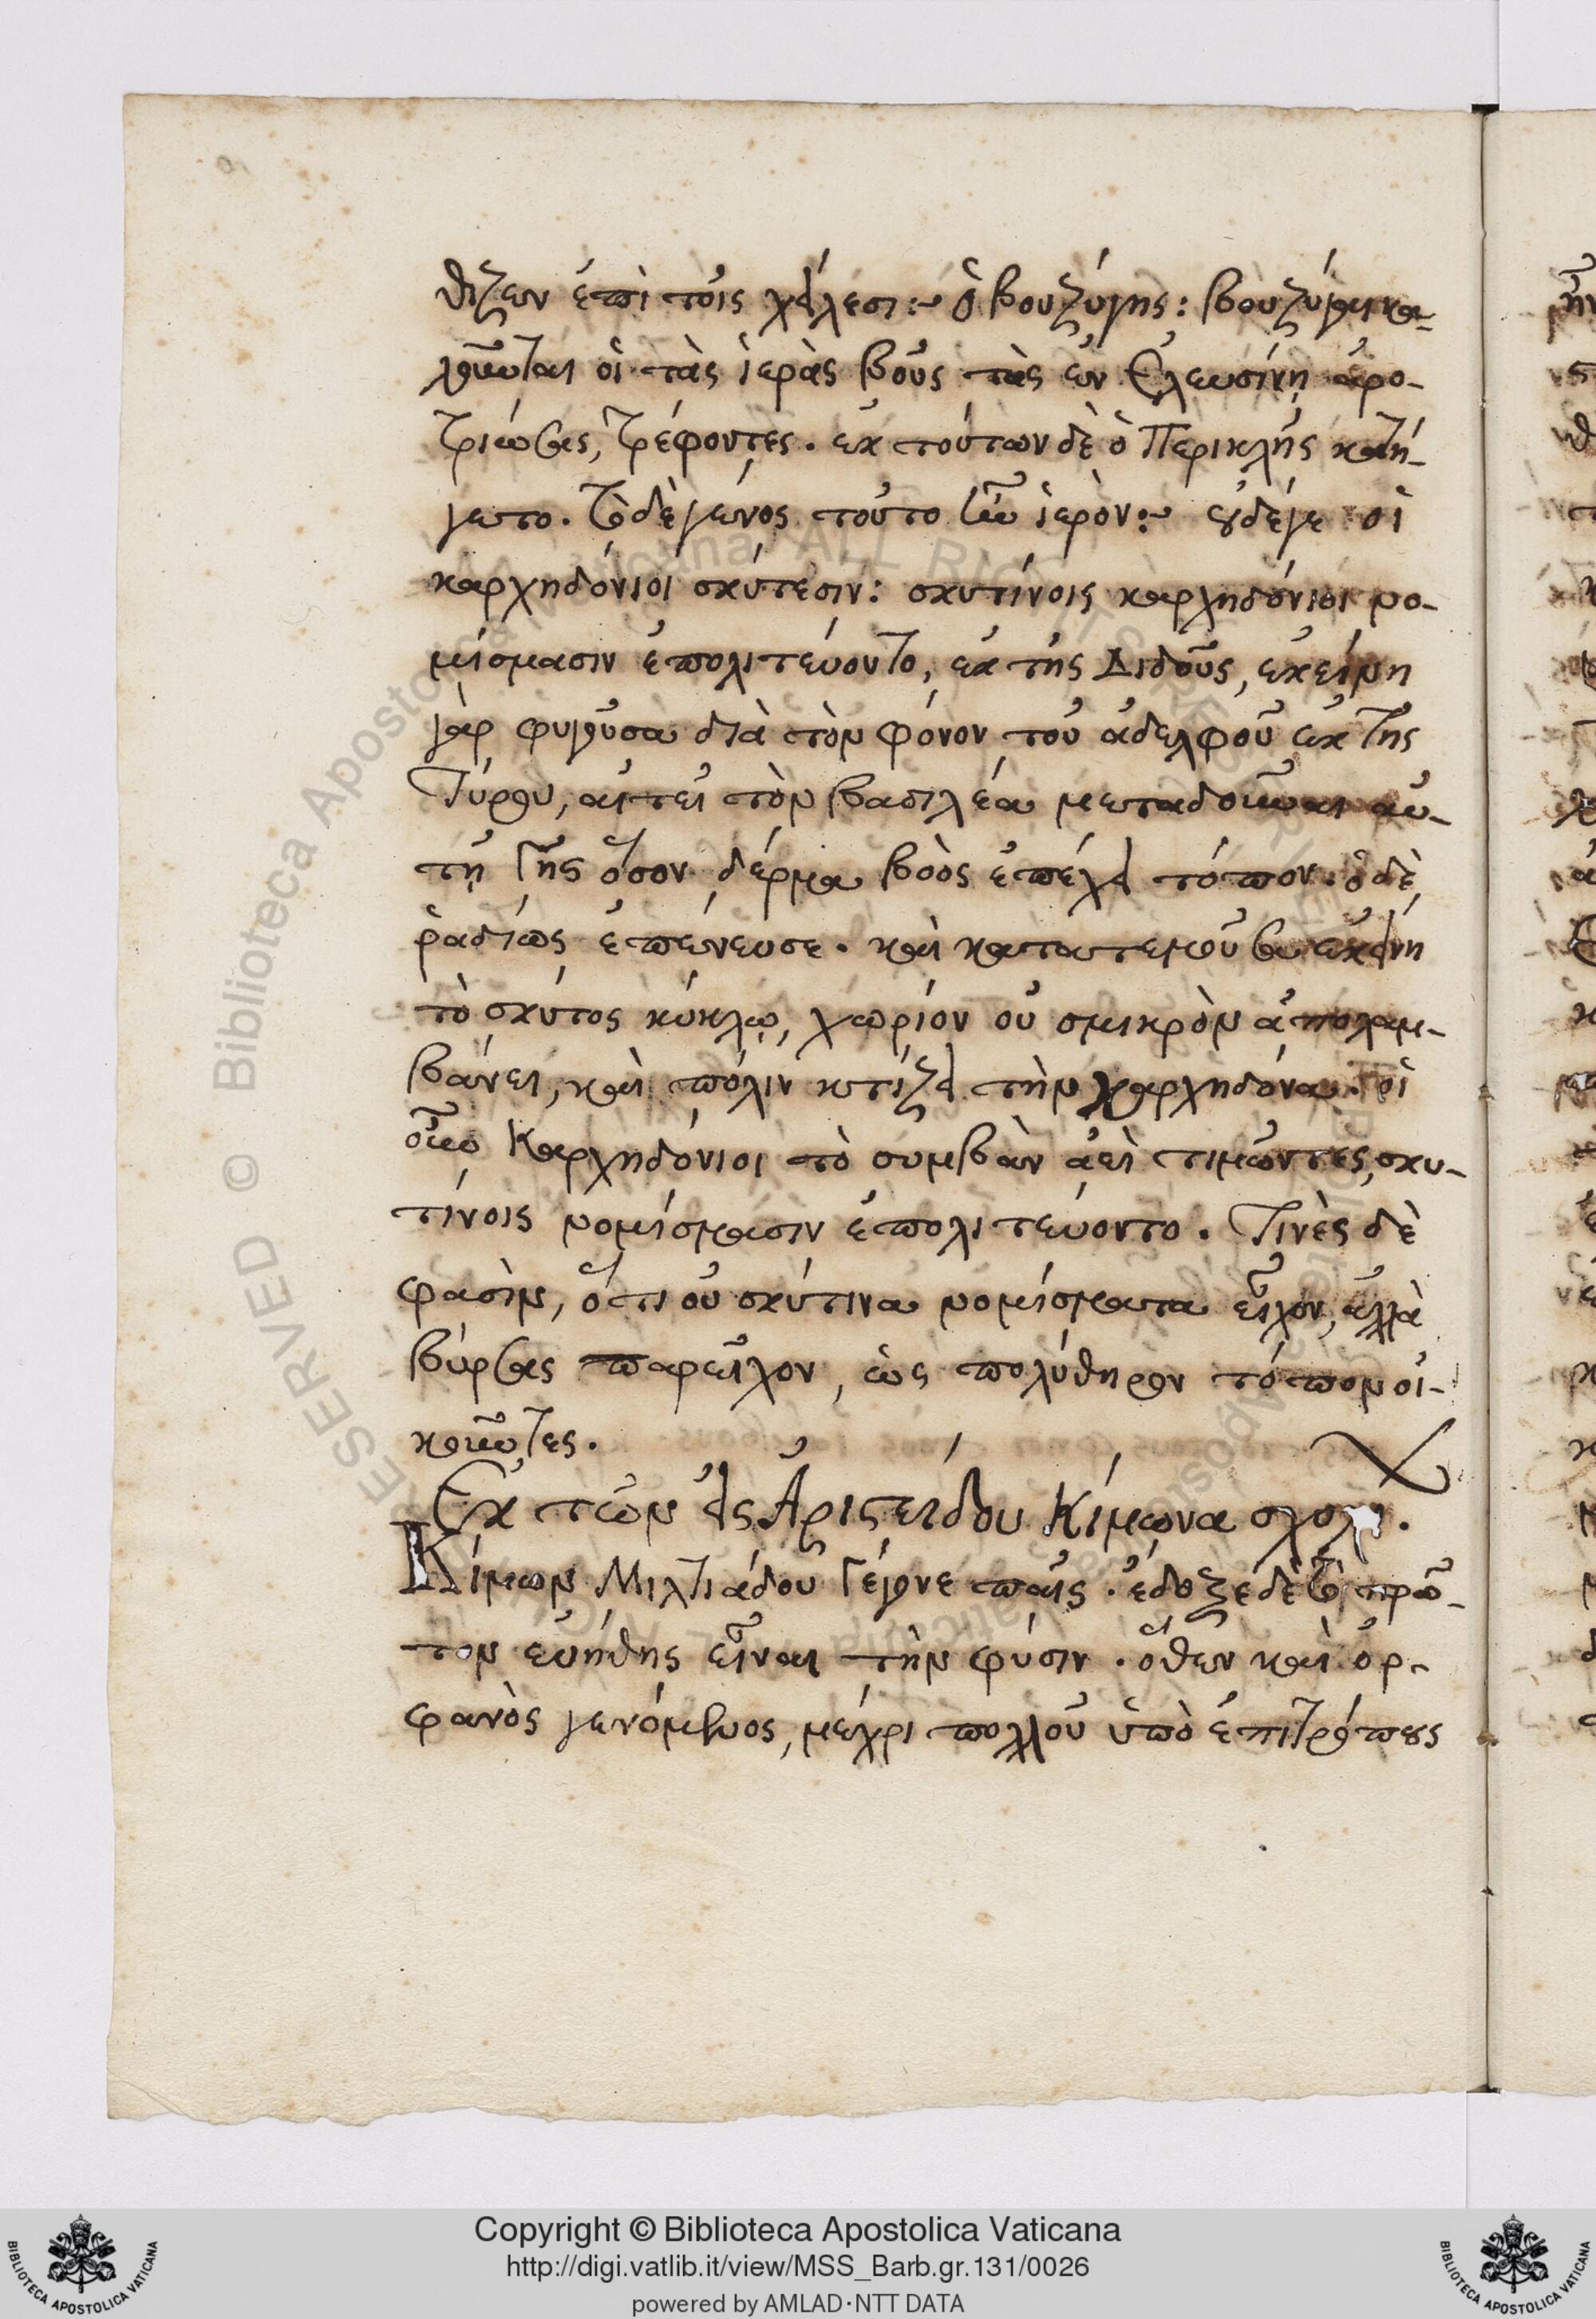 θιζεν ἐπὶ τοῖς χείλεσι:~ ὁ βουζύγης: βουζύγαι κα-
λοῦνται οἱ τὰς ἱερὰς βοῦς τὰς ἐν Ἐλευσίνῃ ἀρο-
τριώσας, τρέφοντες. ἐκ τούτων δὲ ὁ Περικλῆς κατή-
γετο. τὸ δὲ γένος τοῦτο ἦν ἱερὸν:~ οὐδέγε οἱ
καρχηδόνιοι σκύτεσιν: σκυτίνοις καρχηδόνιοι νο-
μίσμασιν ἐπολιτεύοντο, ἐκ τῆς Διδοῦς, ἐκείνη
γὰρ φυγοῦσα διὰ τὸν φόνον τοῦ ἀδελφοῦ ἐκ τῆς
Τύρου, αἰτεῖ τὸν βασιλέα μεταδοῦναι αὐ-
τῇ γῆς ὅσον δέρμα βοὸς ἐπέχει τόπον. ὁ δὲ
ῥαδίως ἐπένευσε. καὶ κατατεμοῦσα ἐκείνη
τὸ σκύτος κύκλῳ, χωρίον οὐ σμικρὸν ἀπολαμ-
βάνει, καὶ πόλιν κτίζει τὴν καρχηδόνα. οἱ
οὖν Καρχηδόνιοι τὸ συμβὰν ἀεὶ τιμῶντες, σκυ-
τίνοις νομίσμασιν ἐπολιτεύοντο. Τινὲς δὲ
φασὶν, ὅτι οὐ σκύτινα νομίσματα εἶχον, ἀλλὰ
βύρσας παρεῖχον, ὡς πολύθηρον τόπον οἰ-
κοῦντες.
Ἐκ τῶν εἰς Ἀριστείδου Κίμωνα σχολ.
Κίμων Μιλτιάδου γέγονε παῖς. ἔδοξε δὲ τὸ πρῶ-
τον εὐήθης εἶναι τὴν φύσιν. ὅθεν καὶ ὀρ-
φανὸς γενόμενος, μέχρι πολλοῦ ὑπὸ ἐπιτρόπους
© Biblioteca Apostolica Vaticana ALL RIGHTS RESERVED
Copyright © Biblioteca Apostolica Vaticana
http://digi.vatlib.it/view/MSS_Barb.gr.131/0026
powered by AMLAD·NTT DATA
BIBLIOTECA APOSTOLICA VATICANA
BIBLIOTECA APOSTOLICA VATICANA